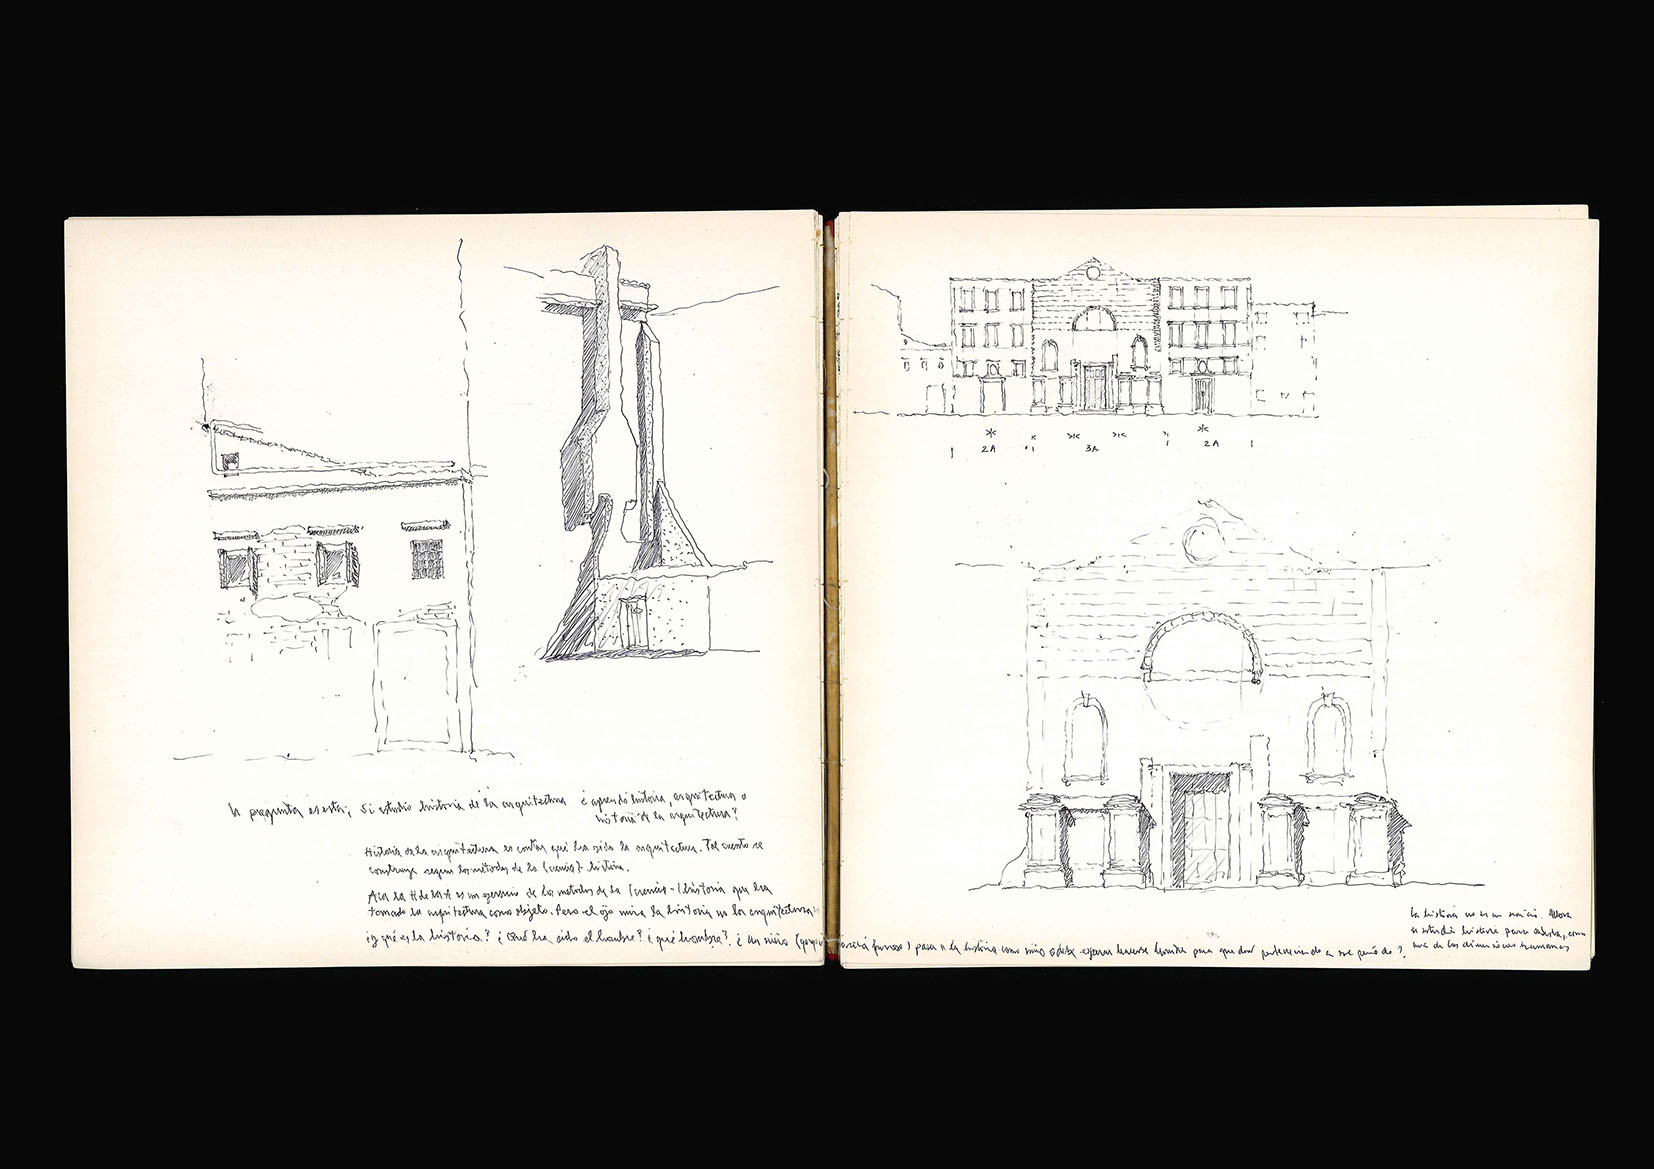 la pregunta es esta; Si estudio historia de la arquitectura ¿ aprendo historia, arquitectura o
historia de la arquitectura?
Historia de la arquitectura es contar qué ha sido la arquitectura. Tal cuento se
construye según los métodos de la (ciencia) historia.
Acá la H de la A es un ejercicio de los métodos de la (ciencia-) historia que ha
tomado la arquitectura como objeto. Pero el ojo mira la historia no la arquitectura
¿y qué es la historia? ¿Qué ha sido el hombre? ¿qué hombre? ¿ un niño ) pasa a la historia como niño o debe esperar hacerse hombre para quedar perteneciendo a ese período?
2A 3A 2A
la historia no es un Ahora
si estudié historia para saberla, como
una de las dimensiones humanas